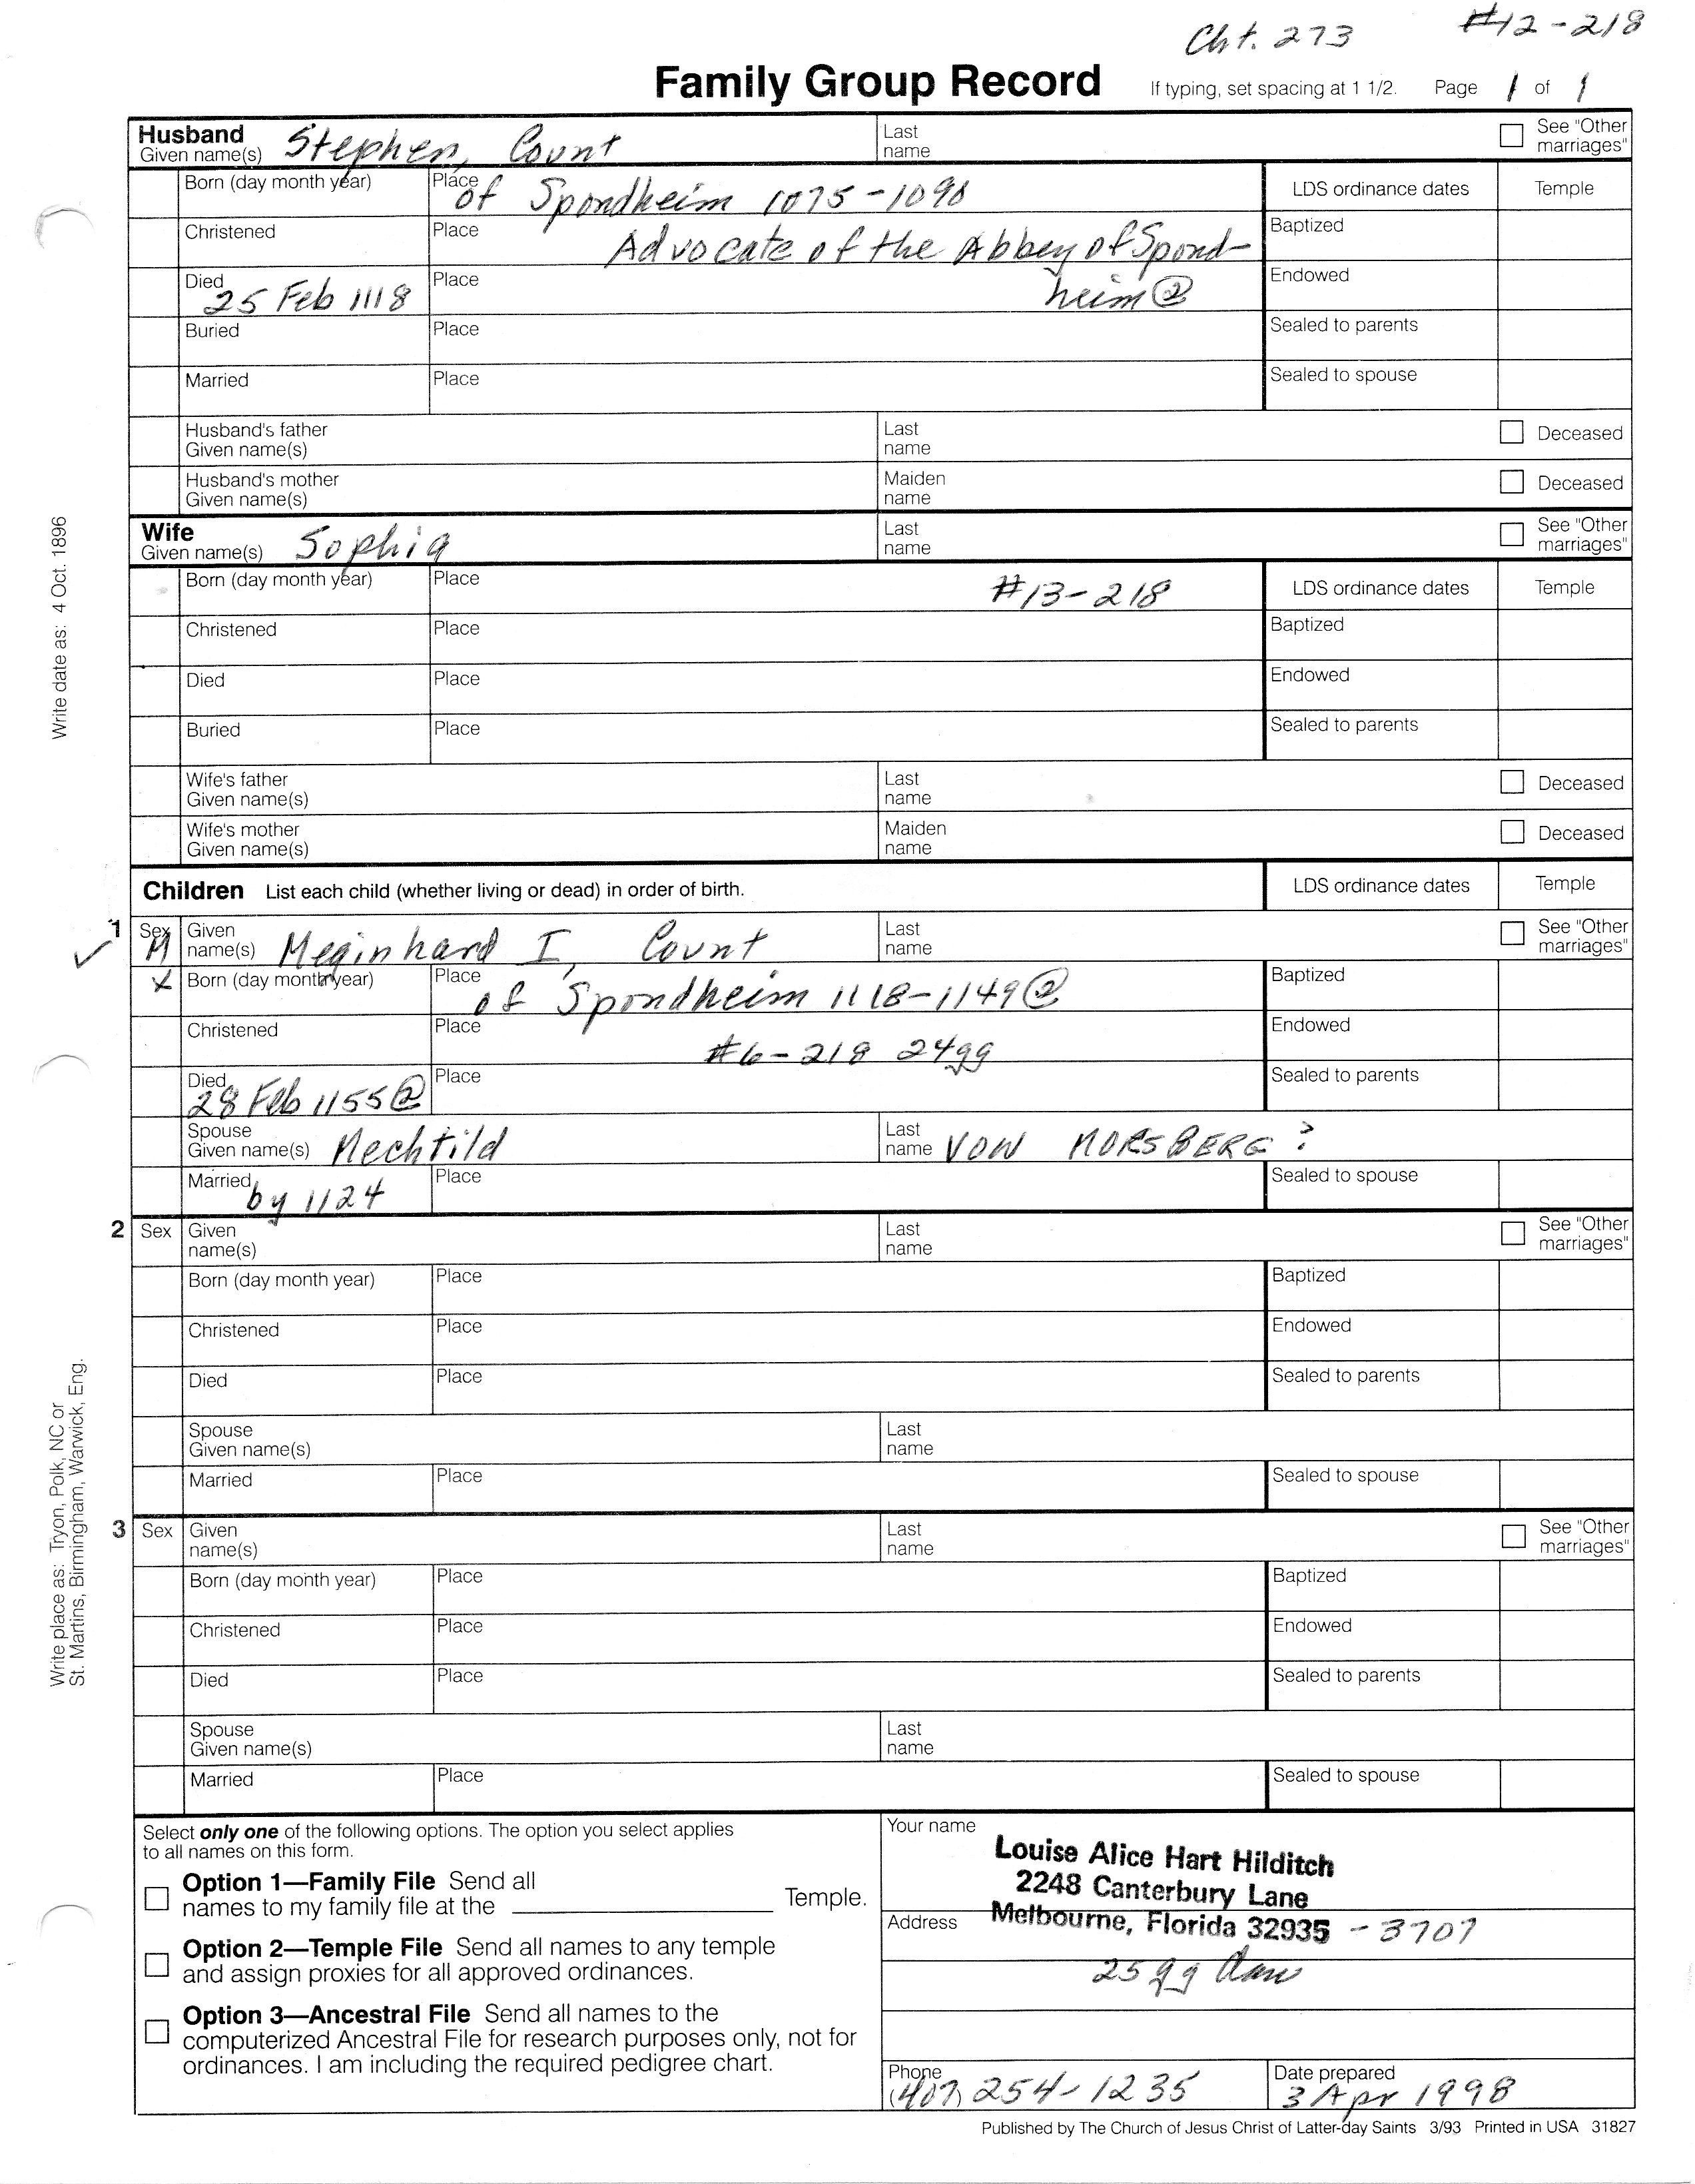 Cht. 273 #12-218
Family Group Record If typing, set spacing at 1 1/2. Page 1 of 1
Husband
Given name(s) Stephen, Count Last name See "Other marriages"
Born (day month year) Place of Spondheim 1075-1098 LDS ordinance dates Temple
Christened Place Advocate of the Abbey of Spond- Baptized
Died 25 Feb 1118 Place heim @ Endowed
Buried Place Sealed to parents
Married Place Sealed to spouse
Husband's father Given name(s) Last name Deceased
Husband's mother Given name(s) Maiden name Deceased
Wife
Given name(s) Sophia Last name See "Other marriages"
Born (day month year) Place #13-218 LDS ordinance dates Temple
Christened Place Baptized
Died Place Endowed
Buried Place Sealed to parents
Wife's father Given name(s) Last name Deceased
Wife's mother Given name(s) Maiden name Deceased
Children List each child (whether living or dead) in order of birth. LDS ordinance dates Temple
1 Sex M Given name(s) Meginhard I, Count Last name See "Other marriages"
X Born (day month year) Place of Spondheim 1118-1149 @ Baptized
Christened Place #6-218 24gg Endowed
Died 28 Feb 1155 @ Place Sealed to parents
Spouse Given name(s) Mechtild Last name VON MORSBERG ?
Married by 1124 Place Sealed to spouse
2 Sex Given name(s) Last name See "Other marriages"
Born (day month year) Place Baptized
Christened Place Endowed
Died Place Sealed to parents
Spouse Given name(s) Last name
Married Place Sealed to spouse
3 Sex Given name(s) Last name See "Other marriages"
Born (day month year) Place Baptized
Christened Place Endowed
Died Place Sealed to parents
Spouse Given name(s) Last name
Married Place Sealed to spouse
Select only one of the following options. The option you select applies
to all names on this form.
Option 1—Family File Send all
names to my family file at the Temple.
Option 2—Temple File Send all names to any temple
and assign proxies for all approved ordinances.
Option 3—Ancestral File Send all names to the
computerized Ancestral File for research purposes only, not for
ordinances. I am including the required pedigree chart.
Your name Louise Alice Hart Hilditch
2248 Canterbury Lane
Address Melbourne, Florida 32935 - 3707
25gg
Phone (407) 254-1235 Date prepared 3 Apr 1998
Published by The Church of Jesus Christ of Latter-day Saints 3/93 Printed in USA 31827
Write date as: 4 Oct. 1896
Write place as: Tryon, Polk, NC or
St. Martins, Birmingham, Warwick, Eng.